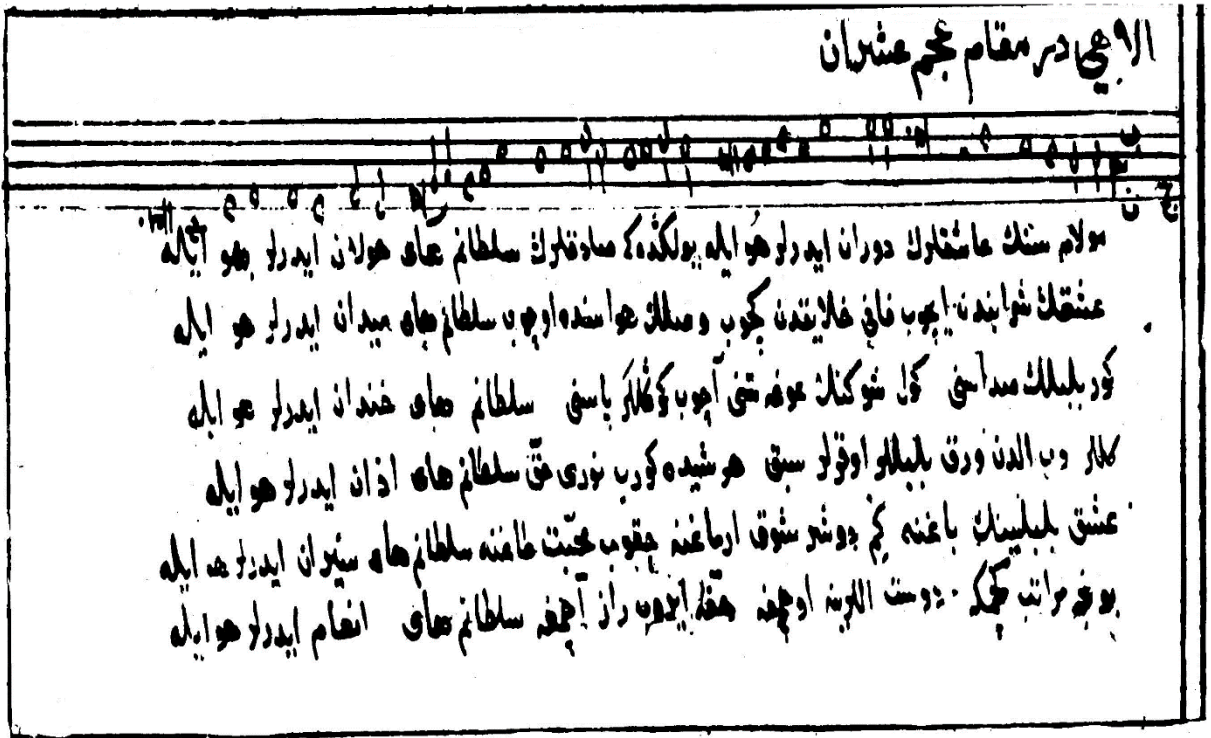 الاهي در مقام عجم عشيران
مولام سنك عاشقلرك دوران ايدرلر هو ايله يولكده كه صادقلرك سلطانم هاى هولان ايدرلر هو ايله
عشقك شرابندن ايچوب فانى خلايقدن كچوب وصلك هواسنده اوچوب سلطانم هاى ميدان ايدرلر هو ايله
كور بلبلك صداسنى كول شوكنك آچوب ياسنى سلطانم هاى خندان ايدرلر هو ايله
كللر الدن ورق بلبللر اوقرلر سبق هر شيده كورب نورى حق سلطانم هاى اذان ايدرلر هو ايله
عشق بلبلينك باغنه كم دوشر شوق ارماغنه چقوب محبت طاغنه سلطانم هاى سيران ايدرلر هو ايله
مراتب كچمكه دوست اللرينه اوچمغه راز آچمغه سلطانم هاى انعام ايدرلر هو ايله